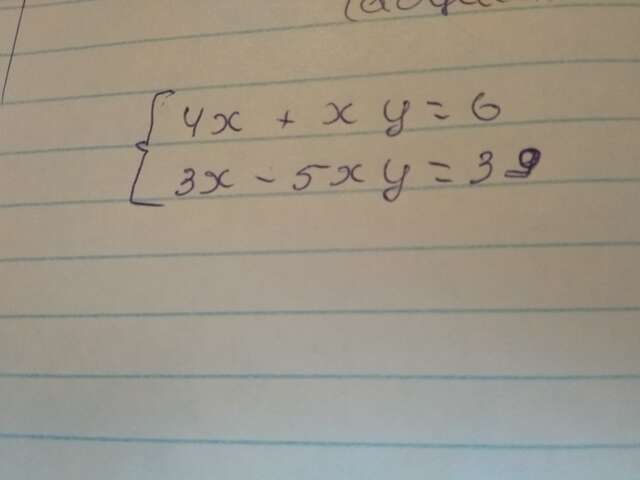 4x + x y = 6
3x - 5x y = 39